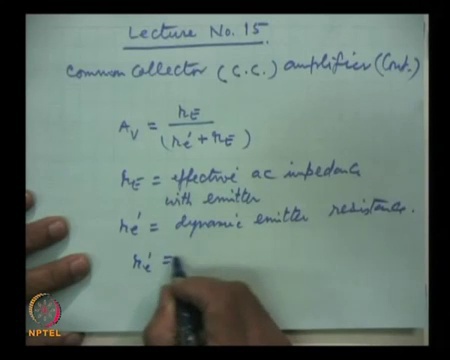 Lecture No. 15.
Common Collector (C.C.) amplifier (Cont.)
A_V = r_E / (r_e' + r_E)
r_E = effective ac impedance
with emitter
r_e' = dynamic emitter resistance.
r_e' =
NPTEL